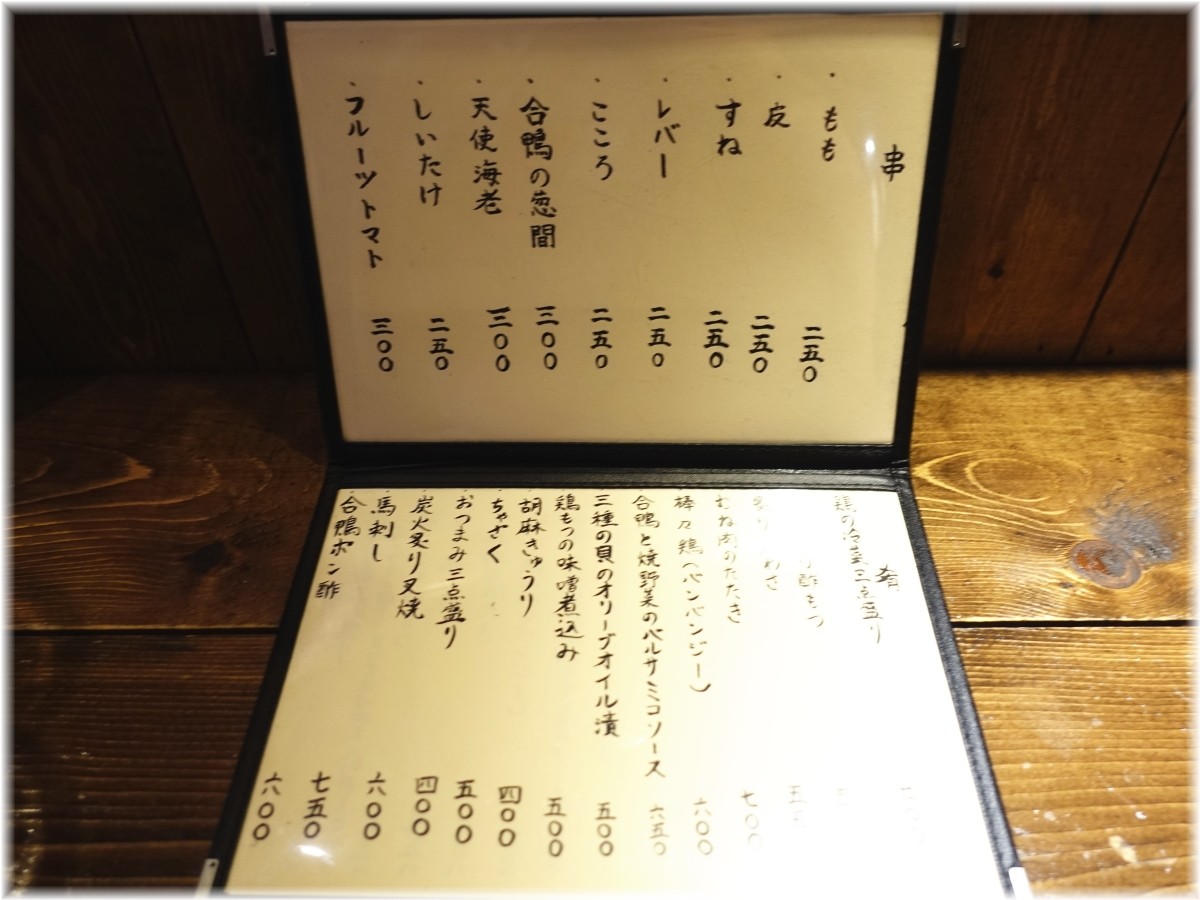 串
・もも 二五〇
・皮 二五〇
・すね 二五〇
・レバー 二五〇
・こころ 二五〇
・合鴨の葱間 三〇〇
・天使海老 三〇〇
・しいたけ 二五〇
・フルーツトマト 三〇〇
肴
鶏の冷菜三点盛り
酢もつ
わさ
むね肉のたたき 七〇〇
棒々鶏(バンバンジー) 六〇〇
合鴨と焼野菜のバルサミコソース 六五〇
三種の貝のオリーブオイル漬 五〇〇
鶏もつの味噌煮込み 五〇〇
胡麻きゅうり 四〇〇
五〇〇
おつまみ三点盛り 四〇〇
炭火炙り叉焼 六〇〇
馬刺し 七五〇
合鴨ポン酢 六〇〇